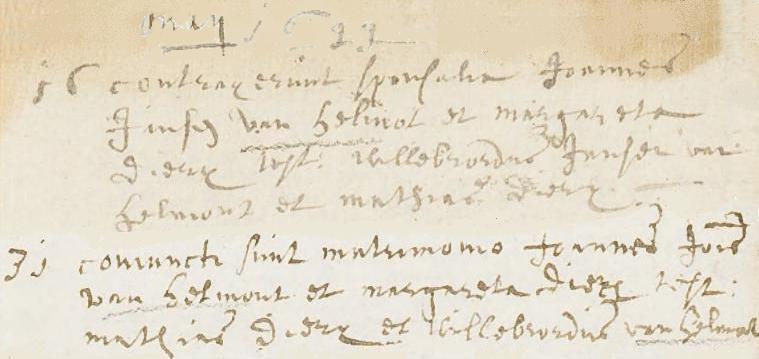 may 1622
16 contraxerunt sponsalia Joannes
Jansen van helmot et margareta
dierx test. willebrordus Jansen van
helmont et mathias dierx.
31 coniuncti sunt matrimonio Joannes Jois
van helmont et margareta dierx test:
mathias dierx et willebrordus van helmot